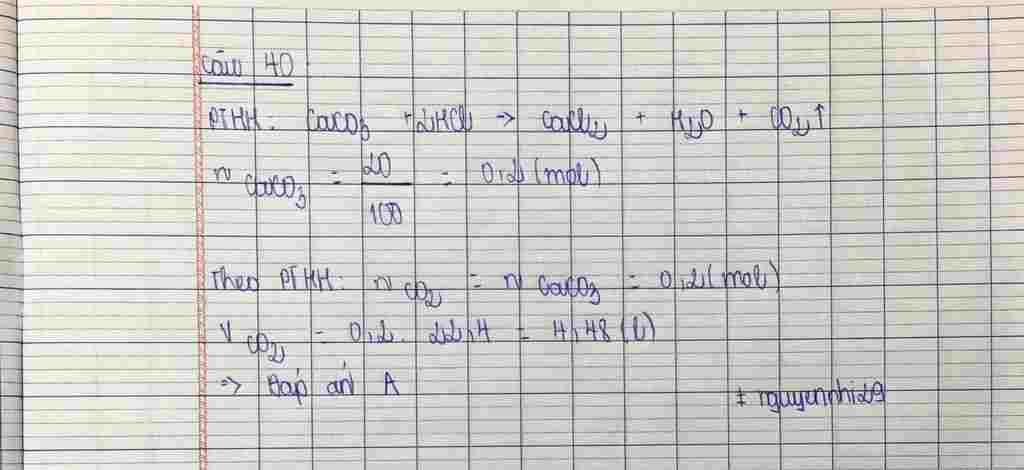 Câu 40
PTHH: CaCO3 + 2HCl -> CaCl2 + H2O + CO2↑
n CaCO3 = 20/100 = 0,2 (mol)
Theo PTHH: n CO2 = n CaCO3 = 0,2 (mol)
V CO2 = 0,2. 22,4 = 4,48 (l)
=> Đáp án A
# nguyennhi29